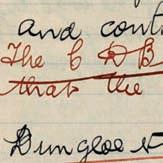 and cont
The C D B
that the
Dungloe